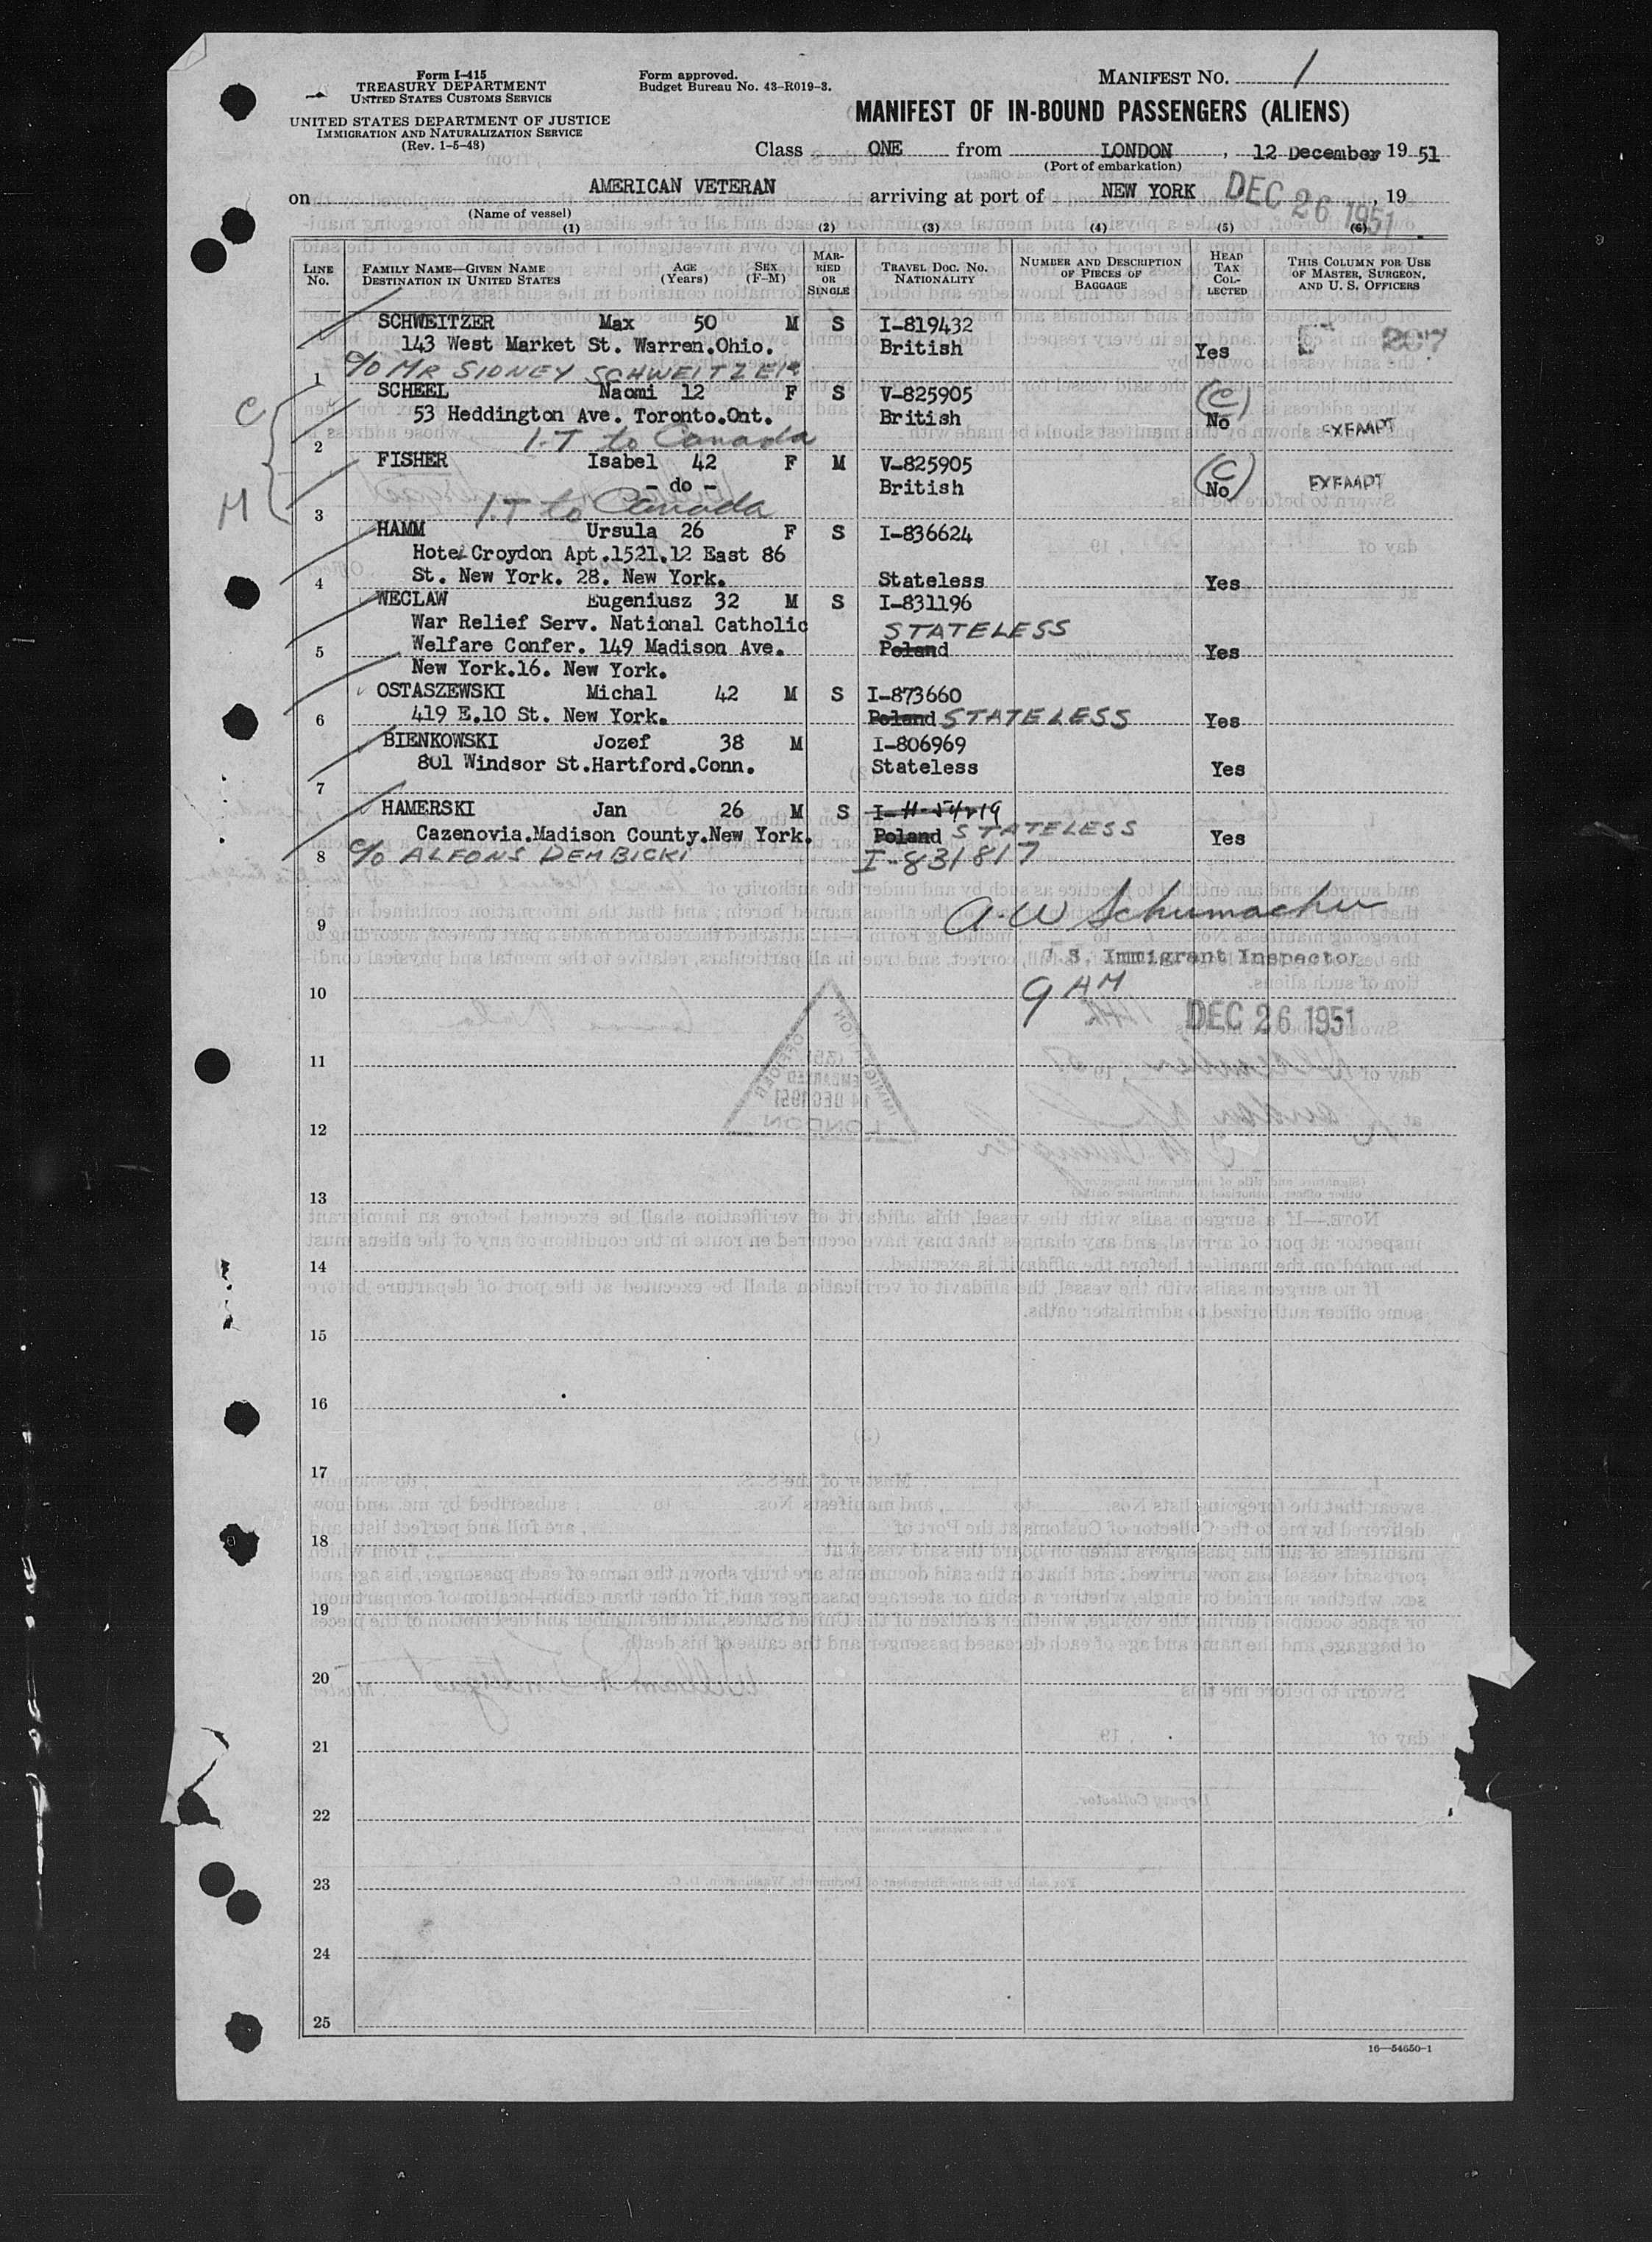 Form I-415
TREASURY DEPARTMENT
UNITED STATES CUSTOMS SERVICE
UNITED STATES DEPARTMENT OF JUSTICE
IMMIGRATION AND NATURALIZATION SERVICE
(Rev. 1-5-48)
Form approved.
Budget Bureau No. 43-R019-3.
MANIFEST NO. 1
MANIFEST OF IN-BOUND PASSENGERS (ALIENS)
Class ONE from LONDON, 12 December 19 51
(Port of embarkation)
on AMERICAN VETERAN arriving at port of NEW YORK DEC 26 1951, 19
(Name of vessel)
(1) (2) (3) (4) (5) (6)
LINE NO. FAMILY NAME—GIVEN NAME DESTINATION IN UNITED STATES AGE (Years) SEX (F-M) MARRIED OR SINGLE TRAVEL DOC. NO. NATIONALITY NUMBER AND DESCRIPTION OF PIECES OF BAGGAGE HEAD TAX COLLECTED THIS COLUMN FOR USE OF MASTER, SURGEON, AND U. S. OFFICERS
SCHWEITZER Max 50 M S I-819432
143 West Market St. Warren.Ohio. British Yes
1 c/o MR SIDNEY SCHWEITZER
SCHEEL Naomi 12 F S V-825905 (C)
C 53 Heddington Ave. Toronto.Ont. British No EXEMPT
2 I.T to Canada
FISHER Isabel 42 F M V-825905 (C)
- do - British No EXEMPT
M 3 I.T to Canada
HAMM Ursula 26 F S I-836624
Hotel Croydon Apt.1521.12 East 86
4 St. New York. 28. New York. Stateless Yes
WECLAW Eugeniusz 32 M S I-831196
War Relief Serv. National Catholic STATELESS
5 Welfare Confer. 149 Madison Ave. Poland Yes
New York.16. New York.
OSTASZEWSKI Michal 42 M S I-873660
6 419 E.10 St. New York. Poland STATELESS Yes
BIENKOWSKI Jozef 38 M I-806969
801 Windsor St.Hartford.Conn. Stateless Yes
7
HAMERSKI Jan 26 M S I-H-54219
Cazenovia.Madison County.New York. Poland STATELESS Yes
8 c/o ALFONS DEMBICKI I-831817
A. W Schumacher
9
U. S. Immigrant Inspector
10 9 AM
DEC 26 1951
11
12
13
14
15
16
17
18
19
20
21
22
23
24
25
16—54650-1